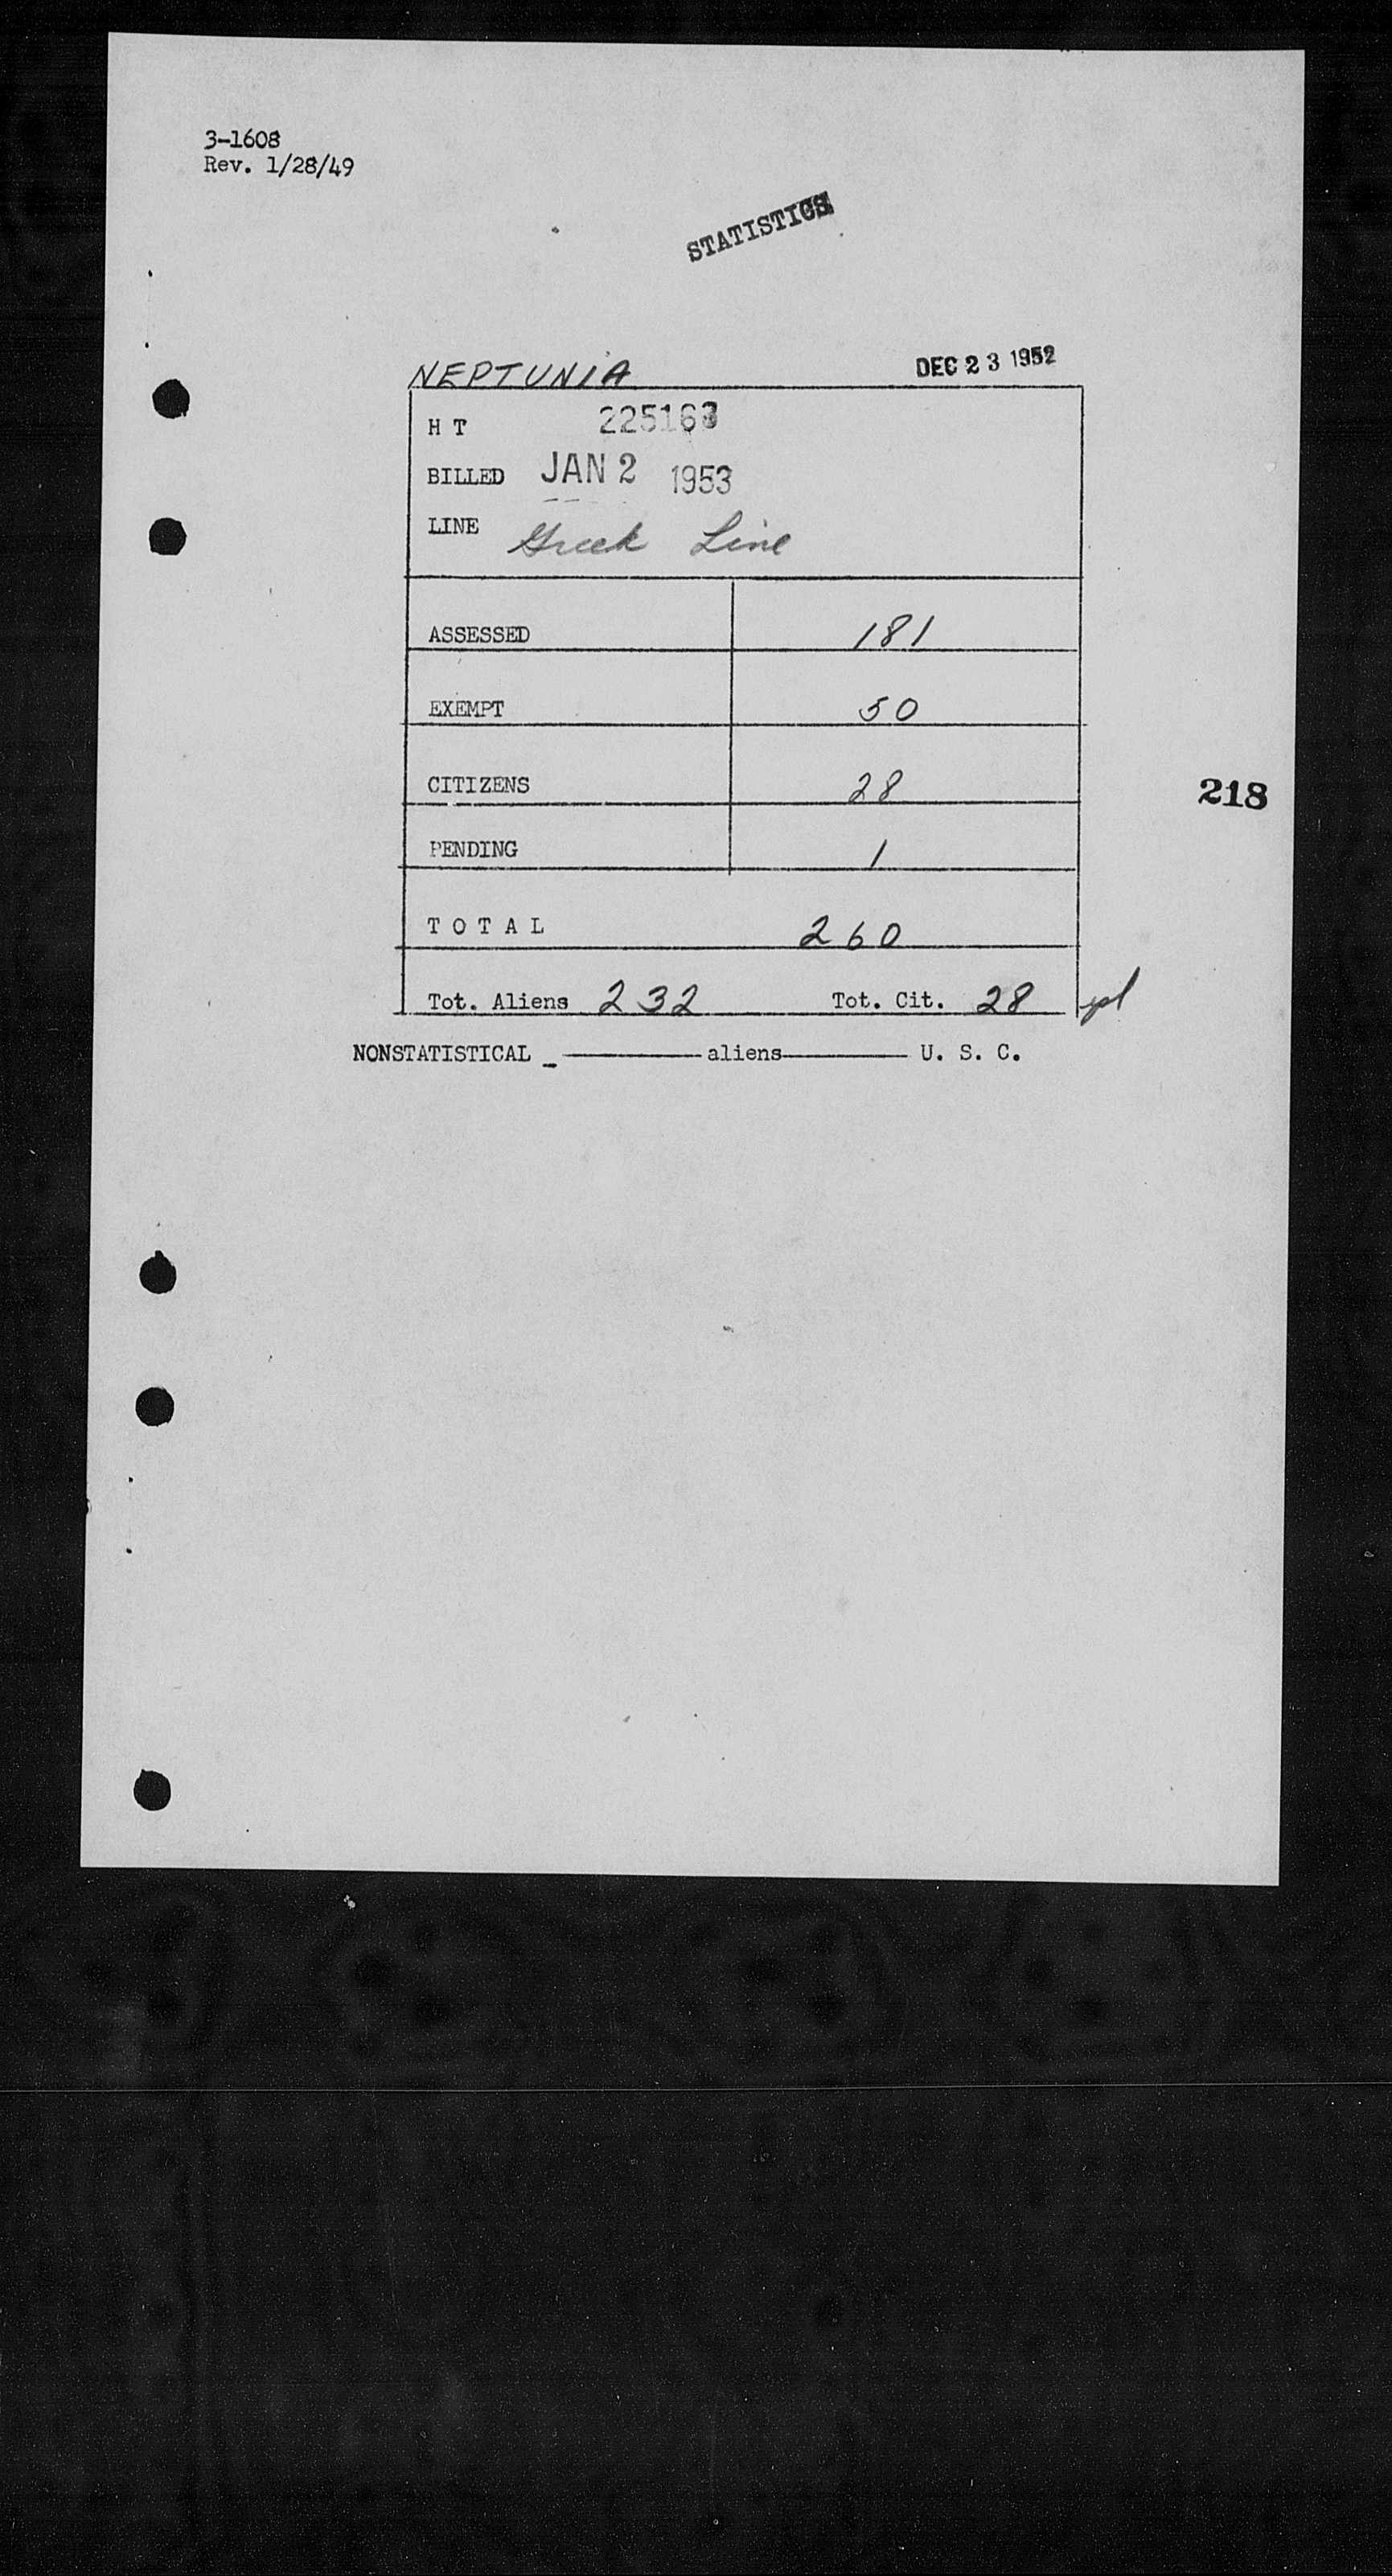 3-1608
Rev. 1/28/49
STATISTICS
NEPTUNIA DEC 23 1952
H T 225163
BILLED JAN 2 1953
LINE Greek Line
ASSESSED 181
EXEMPT 50
CITIZENS 28
218
PENDING 1
T O T A L 260
Tot. Aliens 232 Tot. Cit. 28 pl
NONSTATISTICAL _ ———— aliens ———— U. S. C.